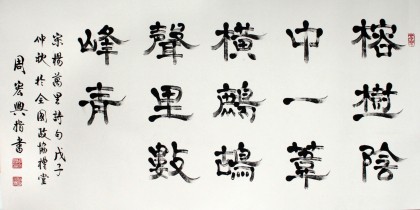 榕樹陰
中一葦
橫鷓鴣
聲里數
峰青
宋楊萬里詩句戊子
仲秋於全國政協禮堂
周宏興指書